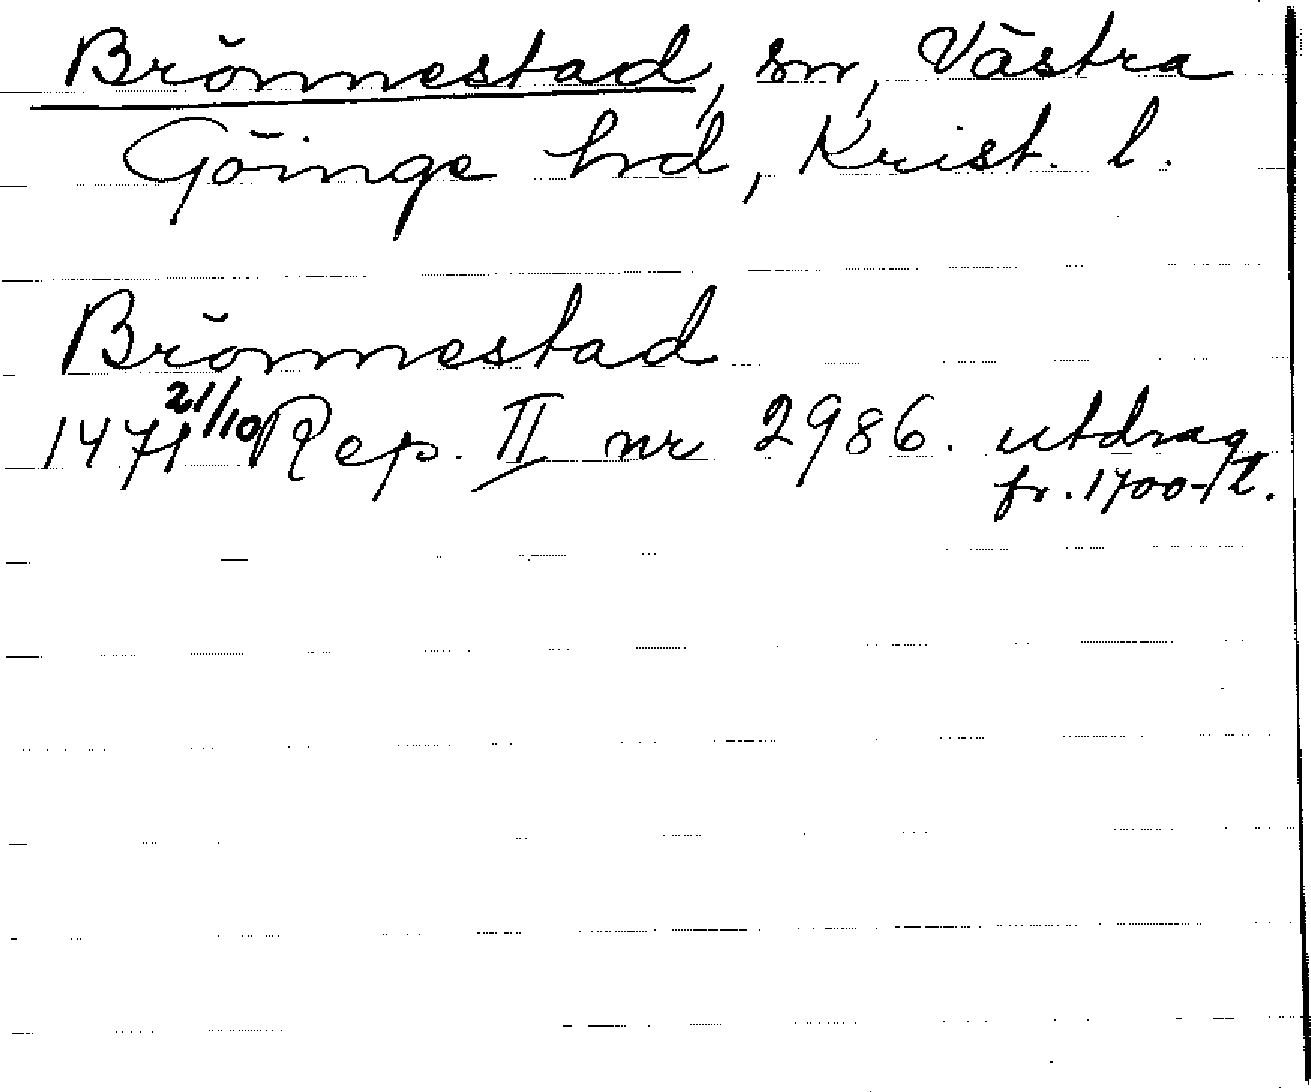 Brönnestad, sn, Västra
Göinge hd, Krist. l.
Brönnestad
1471 21/10 Rep. II nr 2986. utdrag
fr. 1700-t.